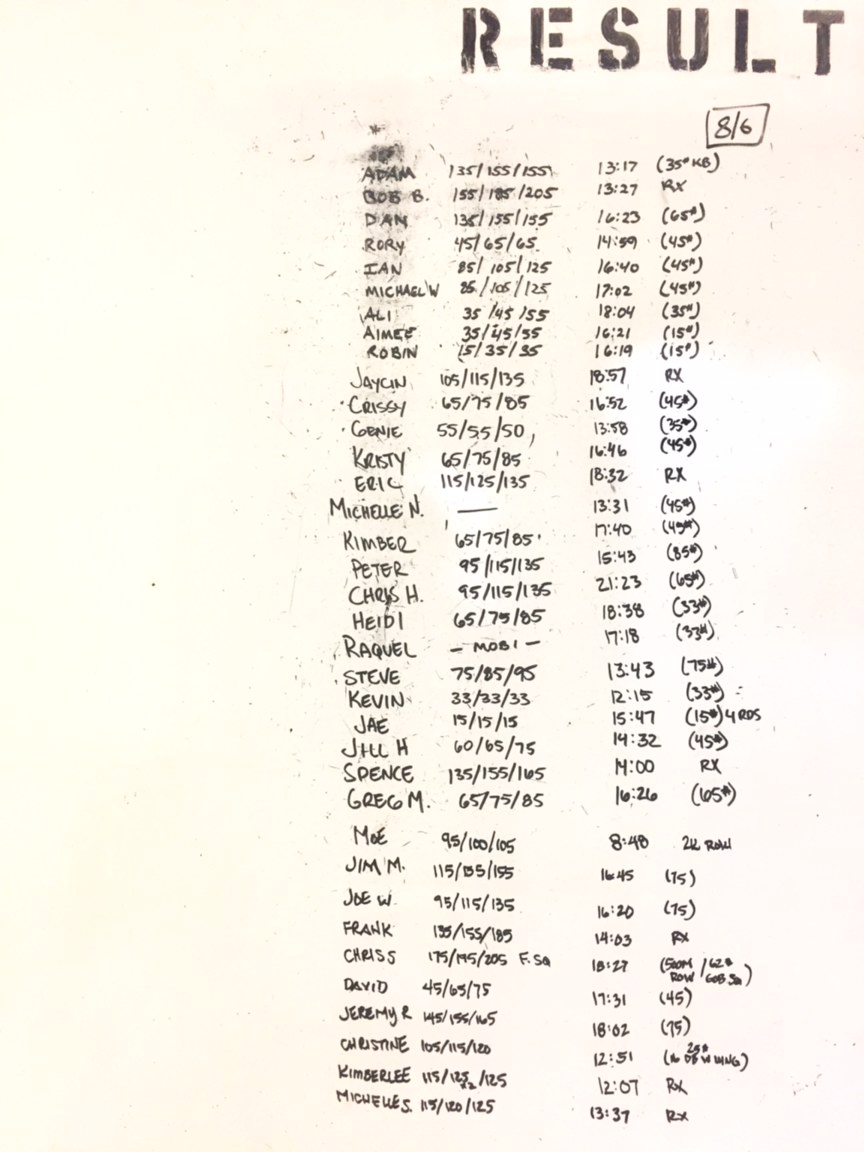 RESULT
8/6
ADAM 135/155/155 13:17 (35# KB)
BOB B. 155/185/205 13:27 RX
DAN 135/155/155 16:23 (65#)
RORY 45/65/65 14:59 (45#)
IAN 85/105/125 16:40 (45#)
MICHAEL W 85/105/125 17:02 (45#)
ALI 35/45/55 18:04 (35#)
AIMEE 35/45/55 16:21 (15#)
ROBIN 15/35/35 16:19 (15#)
JAYCIN 105/115/135 18:57 RX
CRISSY 65/75/85 16:52 (45#)
GENIE 55/55/50 13:58 (35#)
KRISTY 65/75/85 16:46 (45#)
ERIC 115/125/135 18:32 RX
MICHELLE N. — 13:31 (45#)
KIMBER 65/75/85 17:40 (45#)
PETER 95/115/135 15:43 (85#)
CHRIS H. 95/115/135 21:23 (65#)
HEIDI 65/75/85 18:38 (33#)
RAQUEL - MOBI - 17:18 (33#)
STEVE 75/85/95 13:43 (75#)
KEVIN 33/33/33 12:15 (33#)
JAE 15/15/15 15:47 (15#) 4 RDS
JILL H 60/65/75 14:32 (45#)
SPENCE 135/155/165 14:00 RX
GREG M. 65/75/85 16:26 (65#)
MOE 95/100/105 8:48 2K ROW
JIM M. 115/135/155 16:45 (75)
JOE W. 95/115/135 16:20 (75)
FRANK 135/155/185 14:03 RX
CHRIS S 175/195/205 F. SQ 18:27 (500M ROW / 62#
DAVID 45/65/75 17:31 (45)
JEREMY R 145/155/165 18:02 (75)
CHRISTINE 105/115/120 12:51 25#
KIMBERLEE 115/125 x2/125 12:07 RX
MICHELLE S. 115/120/125 13:37 RX